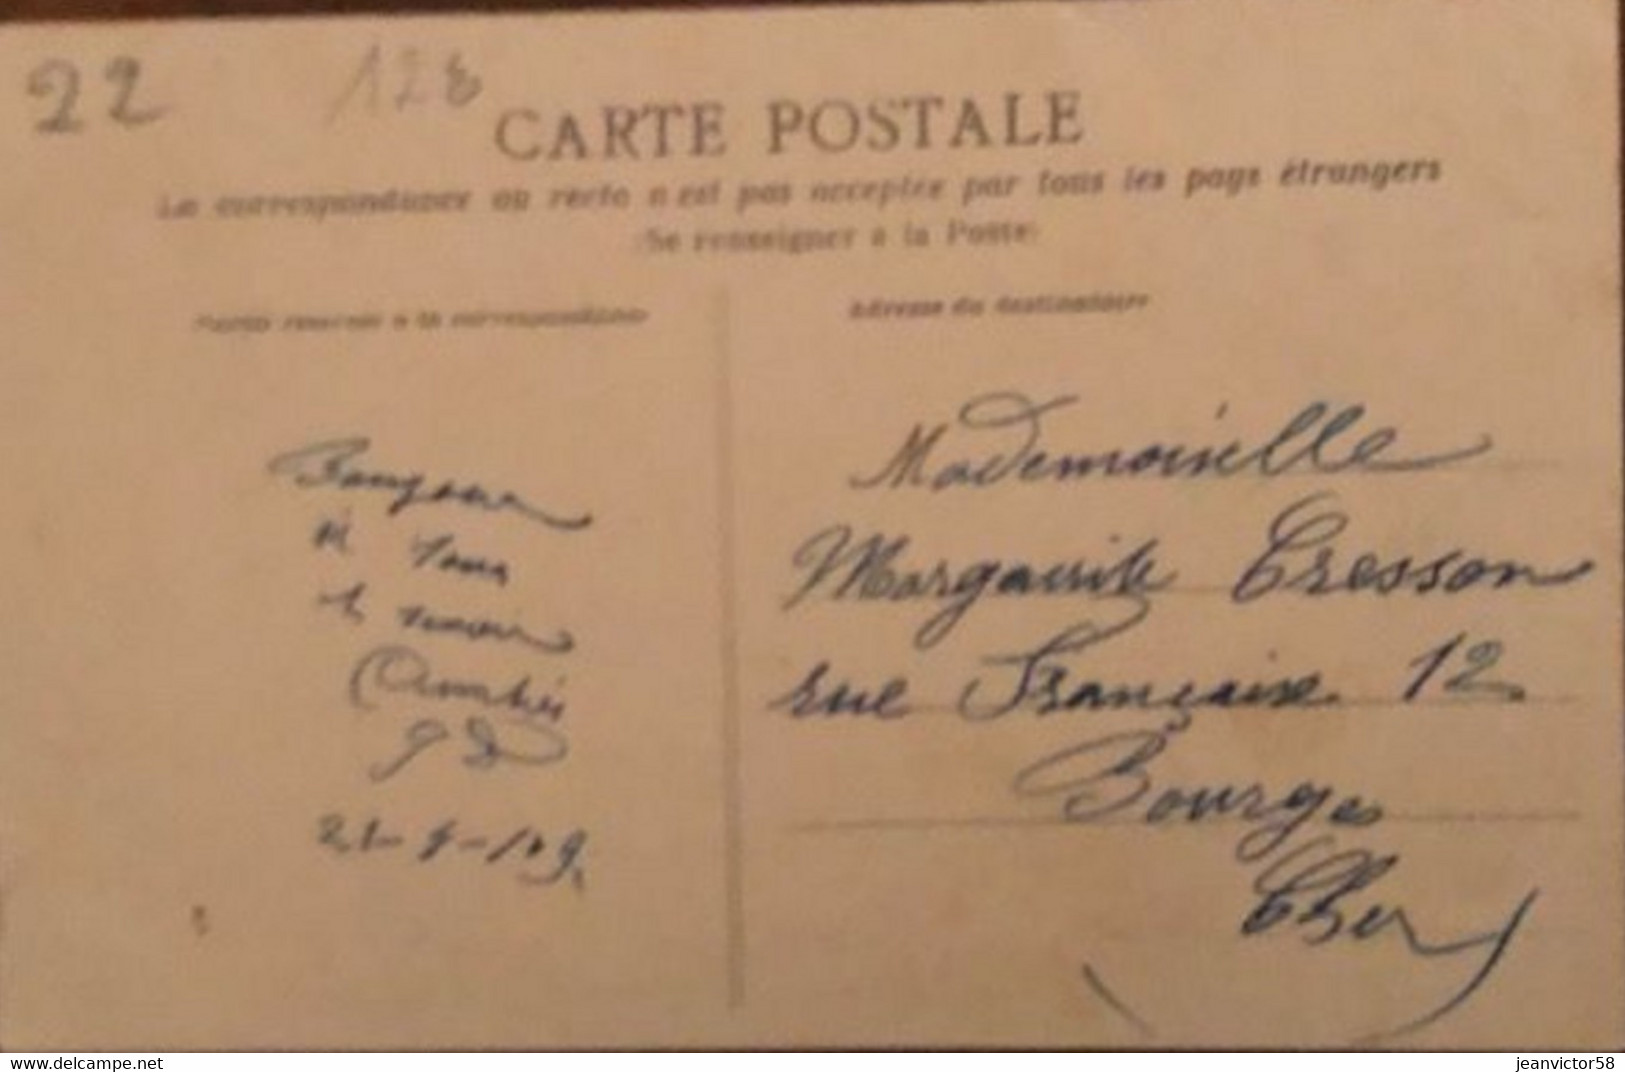 22 128
CARTE POSTALE
La correspondance au recto n'est pas acceptée par tous les pays étrangers
(Se renseigner à la Poste)
Partie réservée à la correspondance
Adresse du destinataire
Bonjour
à tous
Amitiés
21-8-109
Mademoiselle
Marguerite Cresson
rue Française 12
Bourges
Cher
Delcampe.net
jeanvictor58